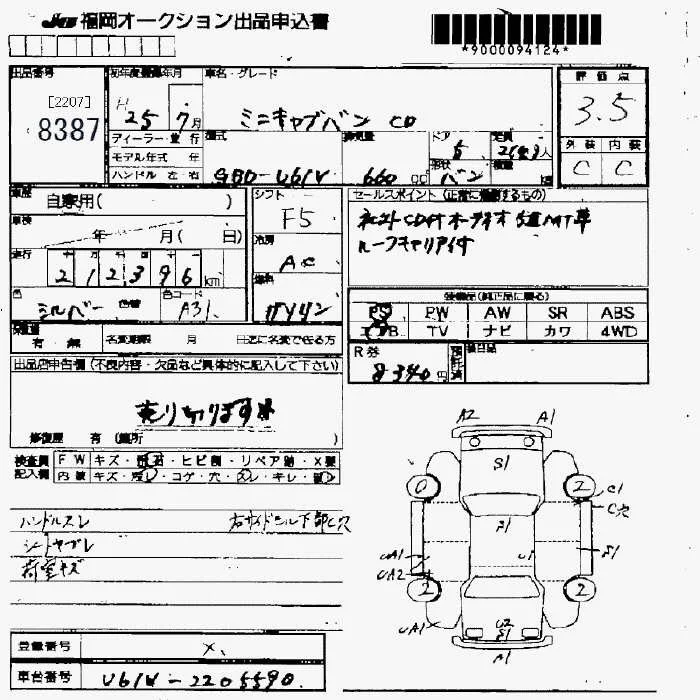 JU福岡オークション出品申込書
*9000094124*
出品番号
[2207]
8387
初年度登録年月
H 25 7月
車名・グレード
ミニキャブバン CD
評価点
3.5
外装 内装
C C
ディーラー・並行
モデル年式 年
ハンドル 左 右
型式
GBD-U61V
排気量
660 CC
ドア
5
形状
バン
定員
2(4)人
積載
車歴
自家用( )
車検
年 月( 日)
走行
212396km
色
シルバー
色替
色コード
A31
シフト
F5
冷房
AC
燃料
ガソリン
セールスポイント(正常に作動するもの)
ネット CD付オーディオ 5速MT車
ルーフキャリア付
装備品(純正品に限る)
PS PW AW SR ABS
エアB TV ナビ カワ 4WD
R券
8340円
預託済
後日品
保証書
有・無
名変期限 月 日迄に名変で在る方
出品店申告欄(不良内容・欠品など具体的に記入して下さい)
売り切ります
修復歴 有(箇所 )
検査員記入欄
FW キズ・飛石・ヒビ割・リペア跡・X要
内装 キズ・汚レ・コゲ・穴・スレ・キレ・
ハンドルスレ
右サイドシル下部C穴
シートヤブレ
荷室キズ
A2
A1
S1
0
2
C1
C穴
A1
UA1
UA2
U1
S1
2
2
UA1
U2
S1
A1
登録番号
X
車台番号
U61V-2205590